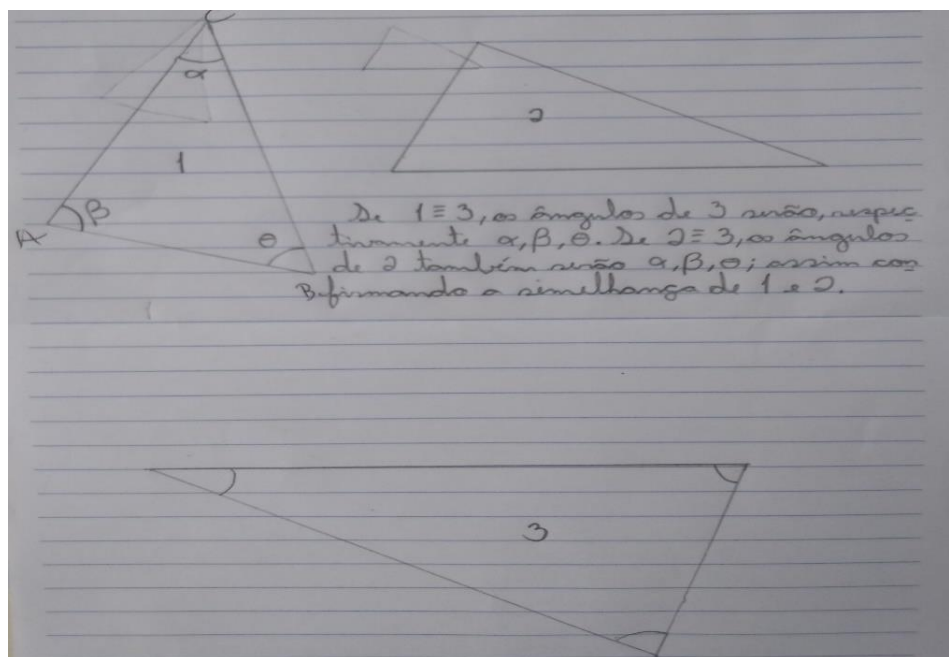 C
α
2
1
β
A
θ
De 1 ≡ 3, os ângulos de 3 serão, respec
tivamente α, β, θ. De 2 ≡ 3, os ângulos
de 2 também serão α, β, θ; assim con
B firmando a semelhança de 1 e 2.
3